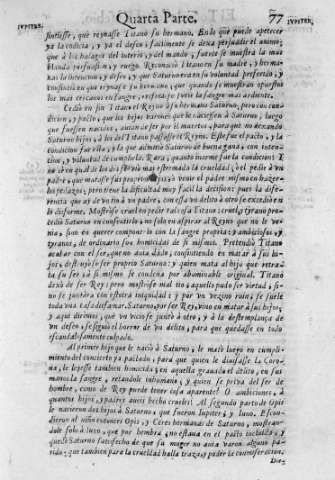 IVPITER.
Quarta Parte.
77
IVPITER,
sintiesse, que reynasse Titano su hermano. En lo que puede apetecer
ya la codicia, y ya el desseo, facilmente se dexa persuadir el animo;
que à los halagos del interès, y del mando, fuerte se muestra la mas
blanda persuasion, y ruego. Reconociò Titano en su madre, y herma-
nas la intencion, y desseo, y que Saturno era en su voluntad preferido, y
en
los mas cercanos en sangre,
Cediò en fin Titano el Reyno à su hermano Saturno, pero con con-
dicion, y pacto, que los hijos varones que le naciessen à Saturno, luego
que fuessen nacidos, avian de ser por èl muertos, para que no dexando
Saturno hijos, à los del Titano passasse el Reyno. Este fue el pacto, y la
condicion fue esta, y la que admitiò Saturno de buena gana, con inten-
cion, y voluntad de cumplirla. Rara, quanto inorme fue la condicion! Y
no sè en qual de los dos
padre, que matasse sus proprios hijos, ò venir el padre mismo en hazer-
los pedaços; pero tiene la dificultad muy facil la decision; pues la dife-
rencia que ay de vn tio à vn padre, con essa vn delito à otro se excediera en
lo disforme. Mostròse cruel en pedir tal cosa Titano; cruel, y tyrano pro-
cediò Saturno en consentirlo; no solo en aspirar al Reyno que no le ve-
nia, sino en querer componerlo con la sangre propria; y ambiciosos, y
tyranos, de ordinario son homicidas de si mismos. Pretendiò Titano
acabar con el ser, que no avia dado; consintiendo en matar à sus hi-
jos, destruyò su ser proprio Saturno; y quien mata al hijo que retra-
ta su ser à si mismo se condena por abominable original. Titano
dexò de ser Rey; pero mostròse mal tio; aquello pudo ser virtud, si-
no se juntàra con esta otra iniquidad; y por vn vezino ruin, se suele
toda vna casa disfamar. Saturno, por ser Rey, vino en matar à sus hijos;
y aqui dirèmos, que vn vicio se junte à otro, y à la destemplança de
vn desseo, se siguiò el horror de vn delito, para que quedasse en todo
escandalosamente culpado.
Al primer hijo que le naciò à Saturno, le matò luego en cumpli-
miento del concierto ya pactado, para que quien le diuisasse la Coro-
na, le leyesse tambien homicida; en aquella gravada el titulo, en sus
manos la sangre, retandole inhumano; y quien se priva del ser de
hombre, como de Rey puede tener cosa aparente? O ambiciones, à
quantos hijos, y padres aveis hecho crueles! Al segundo parto de Opis
le nacieron dos hijos à Saturno, que fueron Iupiter, y Iuno. Escon-
dieron al niño entonces Opis, y Ceres hermanas de Saturno, mostran-
dole solo à Iuno, que por hembra, no estava en el pacto incluìda, y
quedò Saturno satisfecho de que su muger no avia varon alguno pa-
rido; que tambien para la crueldad halla traza, y poder la circunspeccion.
Dié-